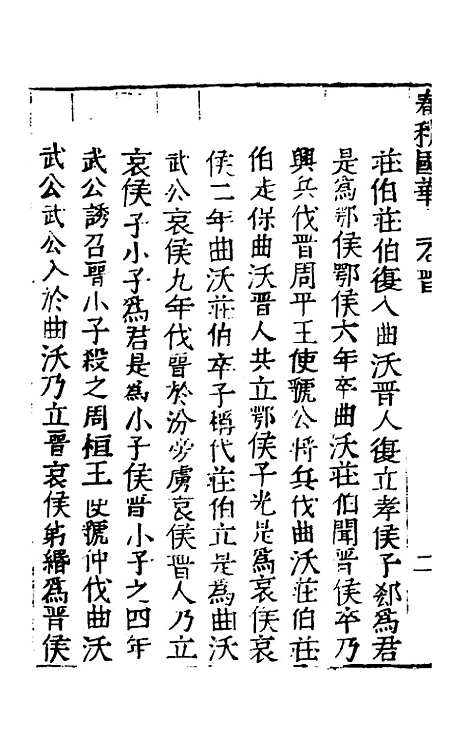 春秋國華 晉 二
莊伯莊伯復入曲沃晉人復立孝侯子郄為君
是為鄂侯鄂侯六年卒曲沃莊伯聞晉侯卒乃
興兵伐晉周平王使虢公將兵伐曲沃莊伯莊
伯走保曲沃晉人共立鄂侯子光是為哀侯哀
侯二年曲沃莊伯卒子稱代莊伯立是為曲沃
武公哀侯九年伐晉於汾旁虜哀侯晉人乃立
哀侯子小子為君是為小子侯晉小子之四年
武公誘召晉小子殺之周桓王使虢仲伐曲沃
武公武公入於曲沃乃立晉哀侯弟緡為晉侯